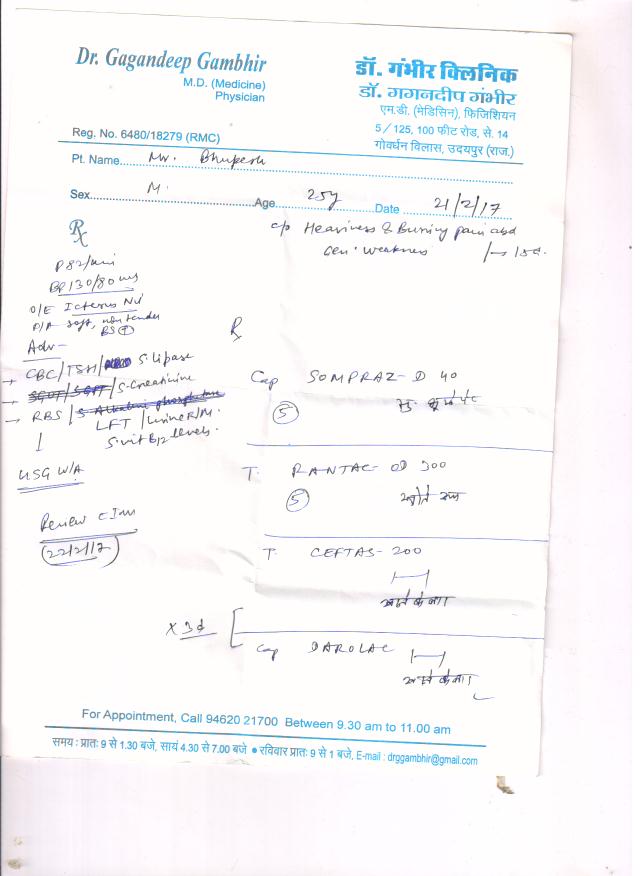 Dr. Gagandeep Gambhir
M.D. (Medicine)
Physician
Reg. No. 6480/18279 (RMC)
डॉ. गंभीर क्लिनिक
डॉ. गगनदीप गंभीर
एम.डी. (मेडिसिन), फिजिशियन
5/125, 100 फीट रोड, से. 14
गोवर्धन विलास, उदयपुर (राज.)
Pt. Name Mr. Bhupesh
Sex M. Age 25y Date 21/2/17
Rx
c/o Heaviness & Burning pain abd
Gen. weakness
P 82/min
BP 130/80
O/E Icterus Nil
P/A soft, non tender
BS +
Adv-
→ CBC/TSH/ S. Lipase
→ SGOT/SGPT/S-Creatinine
→ RBS/S. Alkaline phosphatase
LFT/Urine R/M.
S. vit B12 levels.
USG W/A
Review
22/2/17
Rx
Cap SOMPRAZ-D 40
5
T. RANTAC-OD 300
5
T. CEFTAS-200
x 3d
Cap DAROLAC
For Appointment, Call 94620 21700 Between 9.30 am to 11.00 am
समय : प्रातः 9 से 1.30 बजे, सायं 4.30 से 7.00 बजे ● रविवार प्रातः 9 से 1 बजे, E-mail : drggambhir@gmail.com